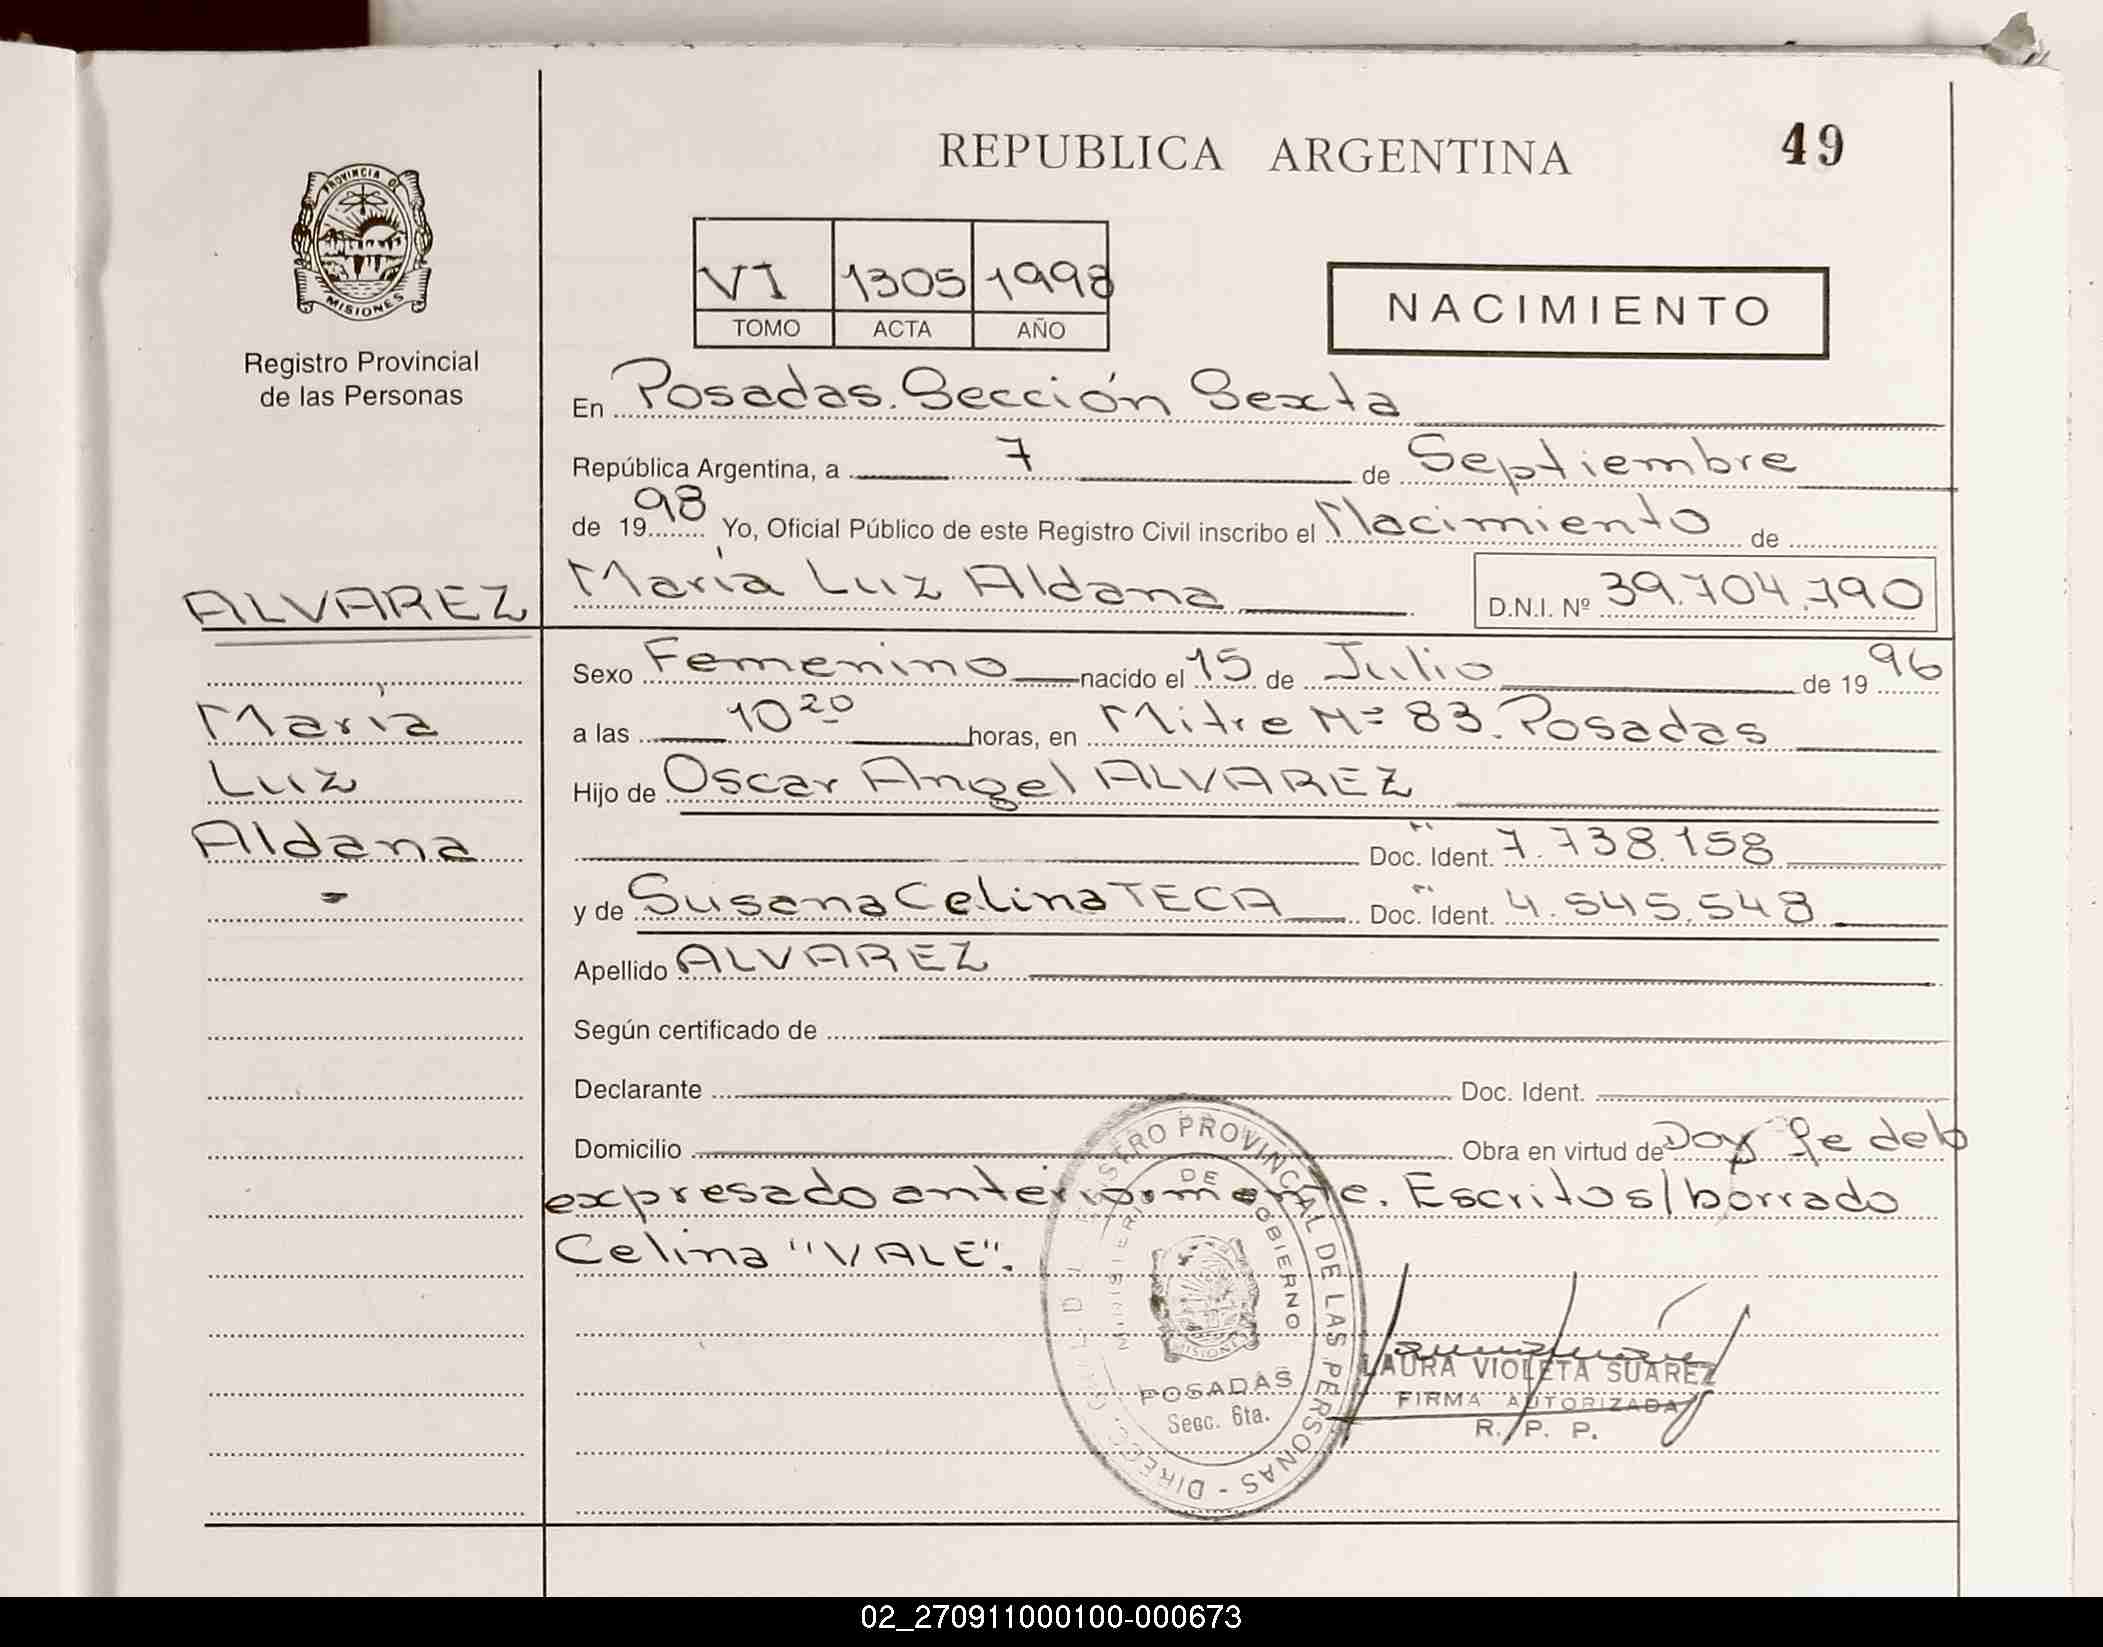 REPUBLICA ARGENTINA
49
PROVINCIA DE
MISIONES
Registro Provincial
de las Personas
VI 1305 1998
TOMO ACTA AÑO
NACIMIENTO
En Posadas. Sección Sexta
República Argentina, a 7 de Septiembre
de 1998 Yo, Oficial Público de este Registro Civil inscribo el Nacimiento de
ALVAREZ
María Luz Aldana
D.N.I. Nº 39.704.790
Sexo Femenino nacido el 15 de Julio de 1996
María
a las 10 20 horas, en Mitre Nº 83. Posadas
Luz
Hijo de Oscar Angel ALVAREZ
Aldana
Doc. Ident. 7.738.158
y de Susana Celina TECA Doc. Ident. 4.545.548
Apellido ALVAREZ
Según certificado de
Declarante Doc. Ident.
Domicilio Obra en virtud de Doy fe de lo
expresado anteriormente. Escrito s/borrado
Celina "VALE".
REGISTRO PROVINCIAL DE LAS PERSONAS - DIRECC.
MINISTERIO DE GOBIERNO
MISIONES
POSADAS
Secc. 6ta.
LAURA VIOLETA SUAREZ
FIRMA AUTORIZADA
R. P. P.
02_270911000100-000673